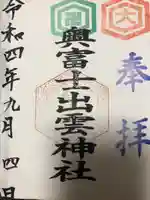 奉拝
大
奥富士出雲神社
令和四年九月四日